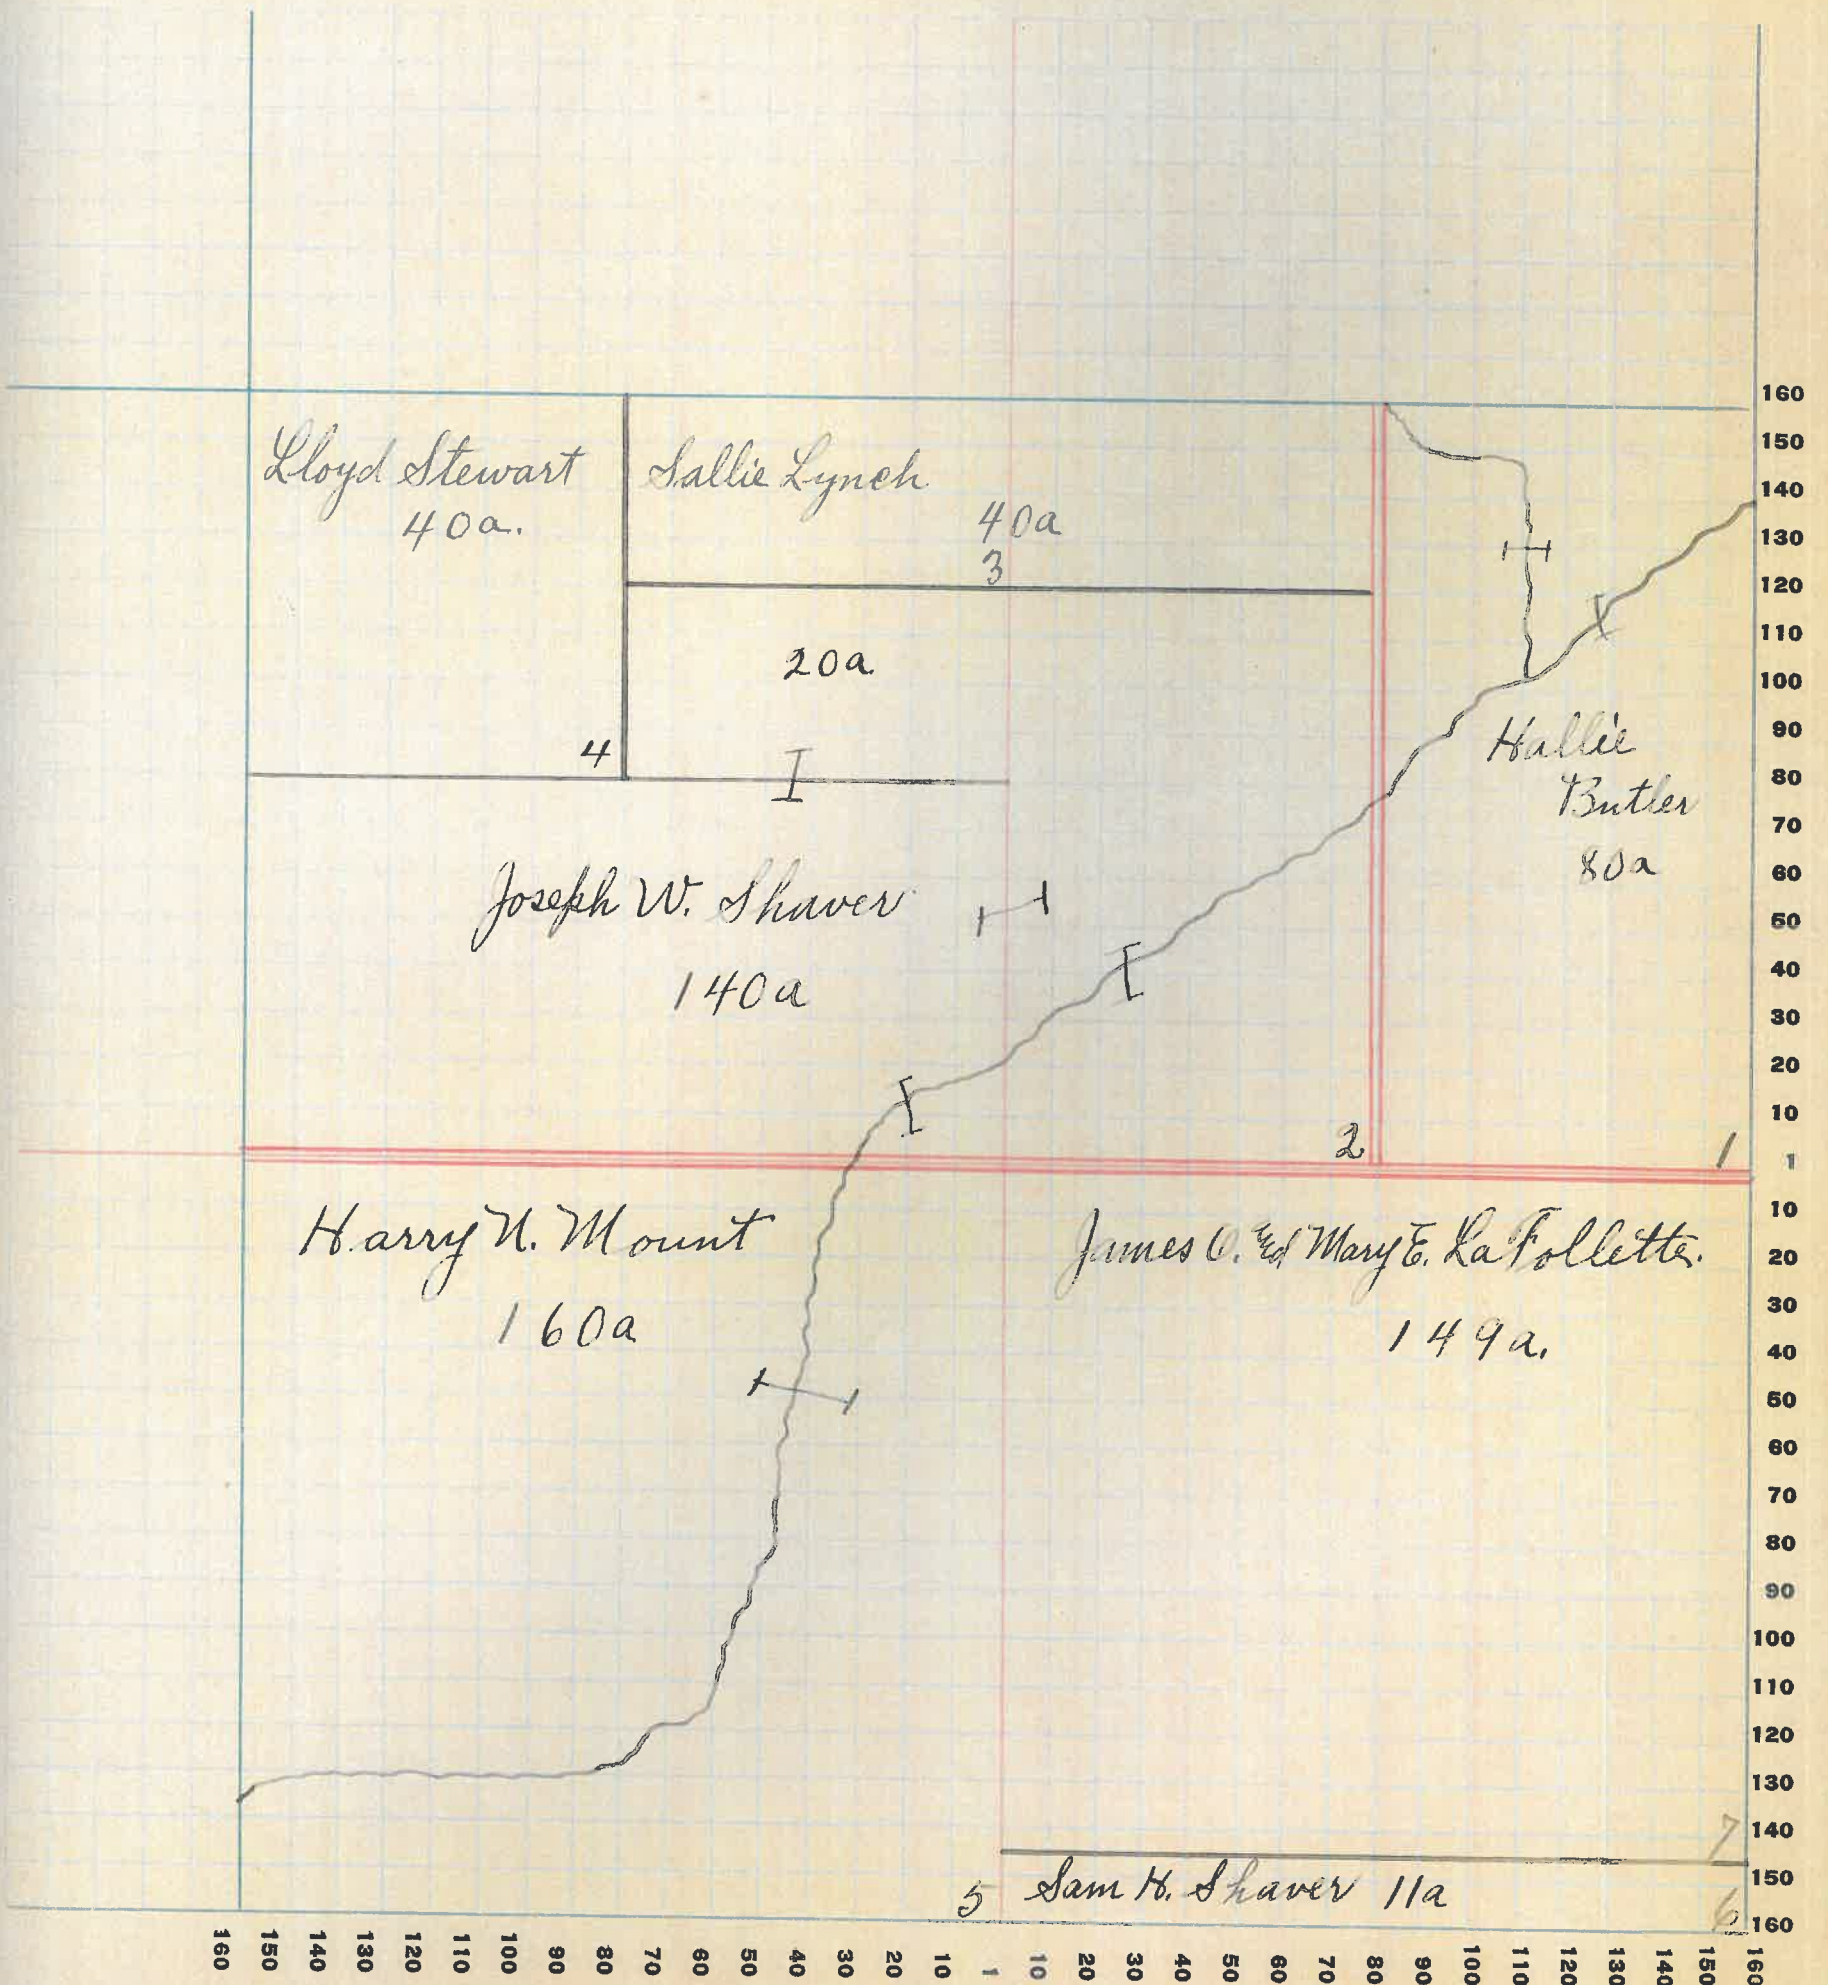 Lloyd Stewart
40a.
4
Sallie Lynch
40a
3
20a
Joseph W. Shaver
140a
2
Hallie
Butler
80a
1
Harry N. Mount
160a
James O. Mary E. LaFollette.
149a.
7
5 Sam H. Shaver 11a
6
160
150
140
130
120
110
100
90
80
70
60
50
40
30
20
10
1
10
20
30
40
50
60
70
80
90
100
110
120
130
140
150
160
160 150 140 130 120 110 100 90 80 70 60 50 40 30 20 10 1 10 20 30 40 50 60 70 80 90 100 110 120 130 140 150 160